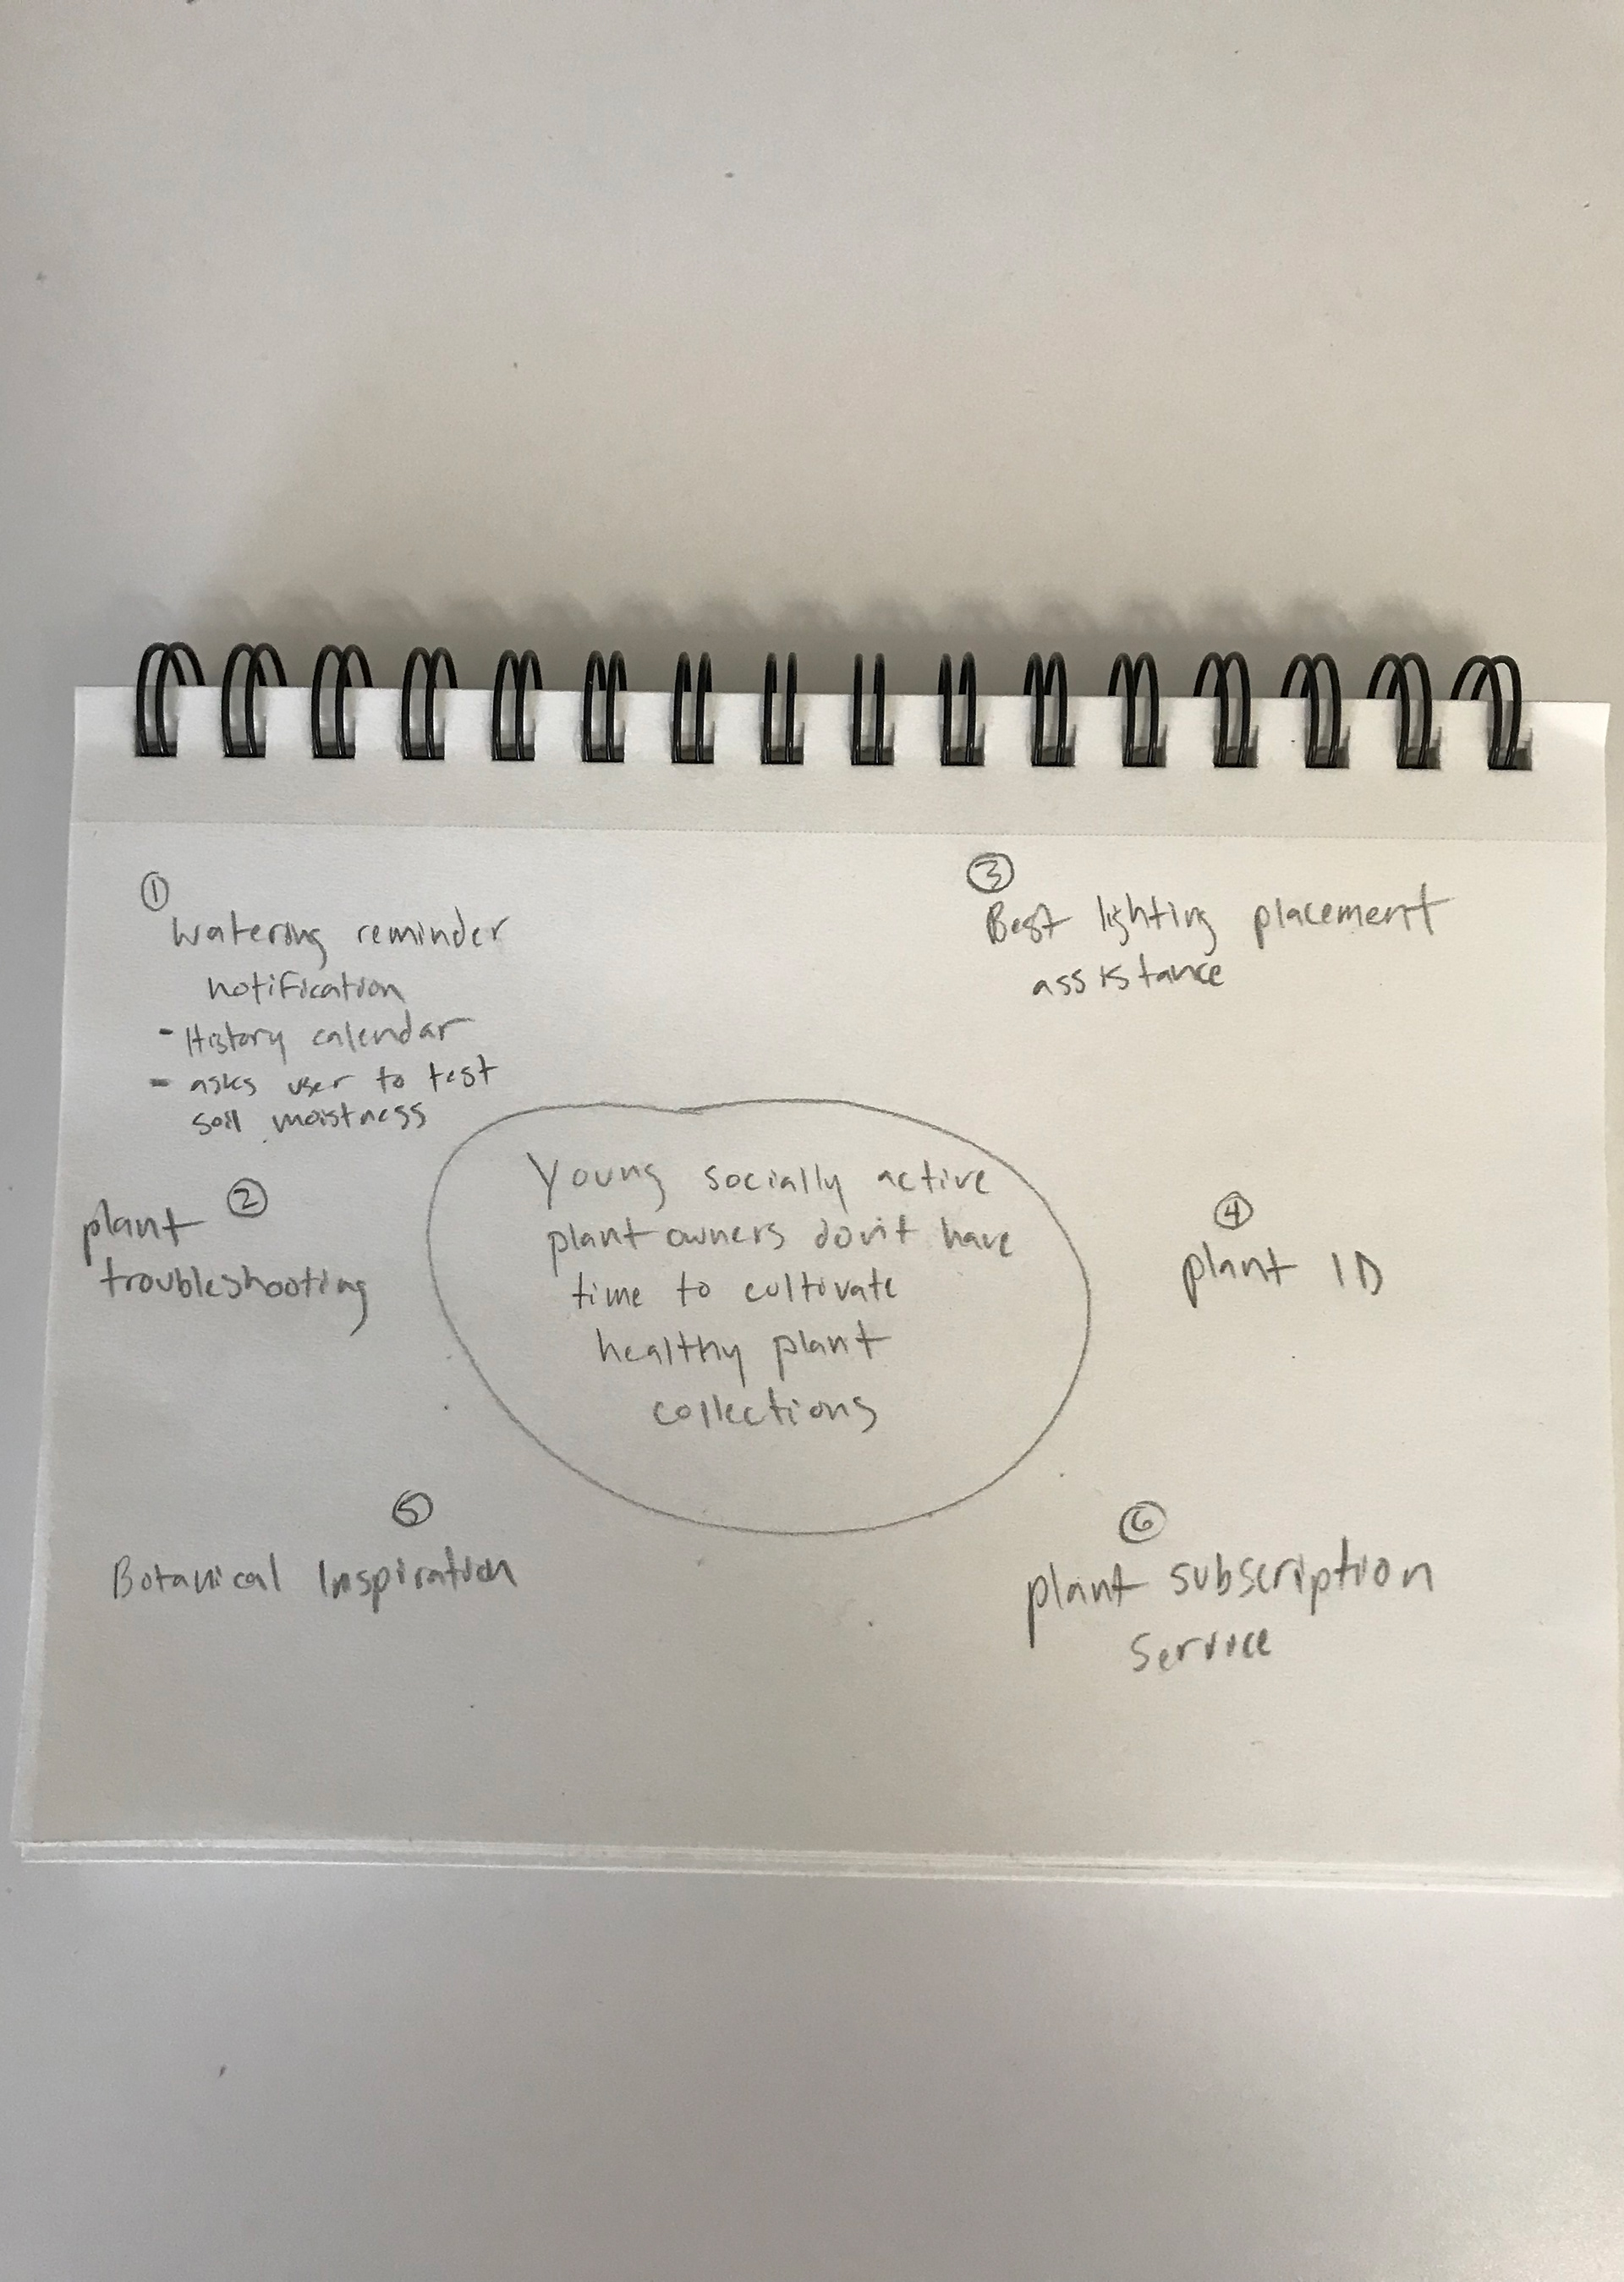 ①
Watering reminder
notification
- History calendar
- asks user to test
soil moistness
②
plant
troubleshooting
③
Best lighting placement
assistance
Young socially active
plant owners don't have
time to cultivate
healthy plant
collections
④
plant ID
⑤
Botanical Inspiration
⑥
plant subscription
Service